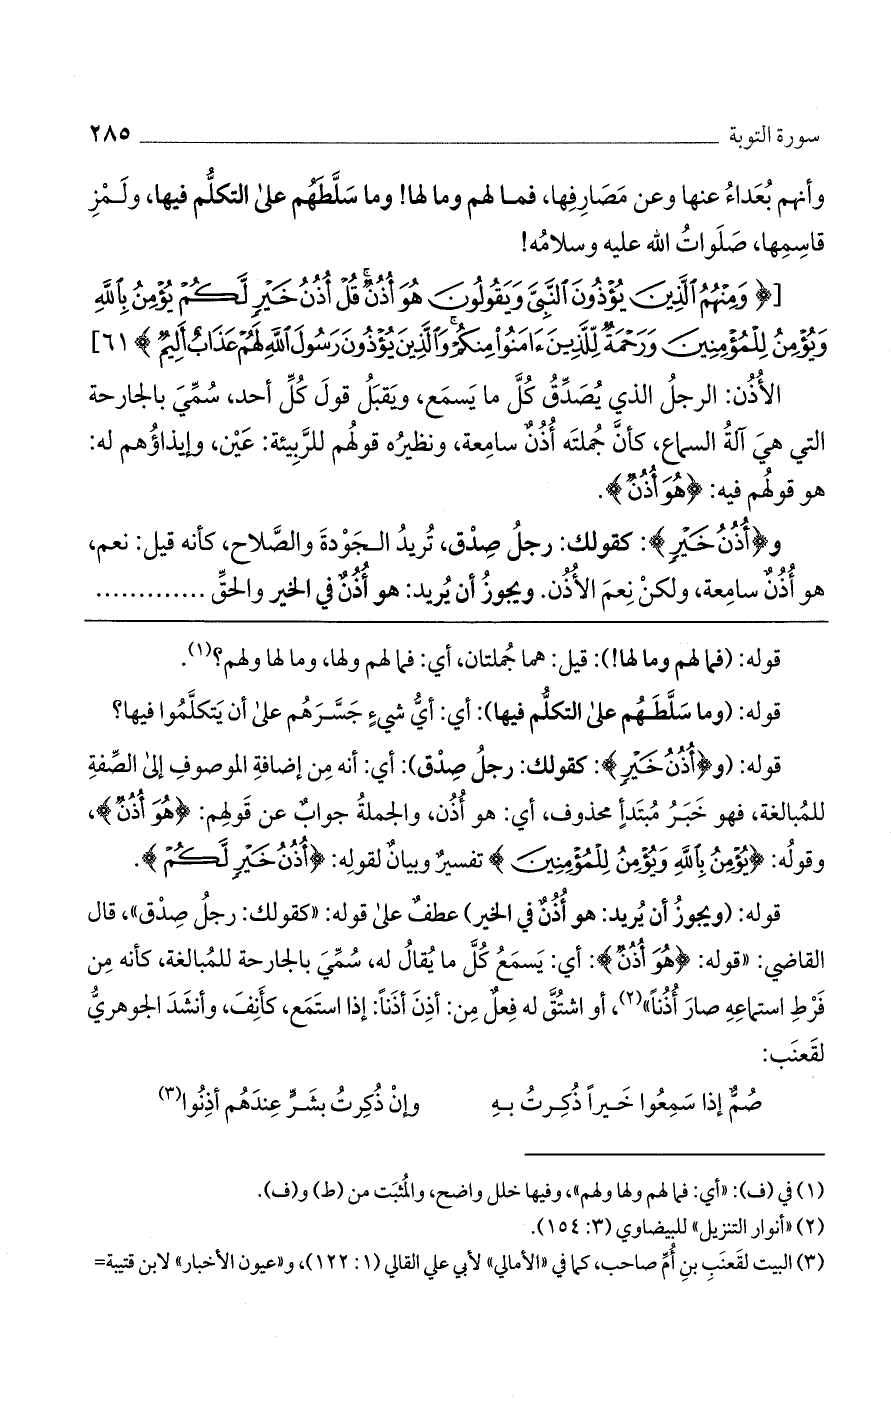 سورة التوبة ٢٨٥
وأنهم بُعَداءُ عنها وعن مَصَارِفِها، فمـا لهم وما لها! وما سَلَّطَهُم علىٰ التكلُّم فيها، ولَـمْزِ
قاسِمِها، صَلَواتُ الله عليه وسلامُه!
[﴿ وَمِنْهُمُ ٱلَّذِينَ يُؤْذُونَ ٱلنَّبِىَّ وَيَقُولُونَ هُوَ أُذُنٌۚ قُلْ أُذُنُ خَيْرٍ لَّكُمْ يُؤْمِنُ بِٱللَّهِ
وَيُؤْمِنُ لِلْمُؤْمِنِينَ وَرَحْمَةٌ لِّلَّذِينَ ءَامَنُوا۟ مِنكُمْۚ وَٱلَّذِينَ يُؤْذُونَ رَسُولَ ٱللَّهِ لَهُمْ عَذَابٌ أَلِيمٌ ﴾ ٦١]
الأُذُن: الرجلُ الذي يُصَدِّقُ كُلَّ ما يَسمَع، ويَقبَلُ قولَ كُلِّ أحد، سُمِّيَ بالجارحة
التي هيَ آلةُ السماع، كأنَّ جُملتَه أُذُنٌ سامِعة، ونظيرُه قولُهم للرَّبِيئة: عَيْن، وإيذاؤُهم له:
هو قولُهم فيه: ﴿هُوَ أُذُنٌ﴾.
و﴿أُذُنُ خَيْرٍ﴾: كقولك: رجلُ صِدْق، تُريدُ الـجَوْدةَ والصَّلاح، كأنه قيل: نعم،
هو أُذُنٌ سامِعة، ولكنْ نِعمَ الأُذُن. ويجوزُ أن يُريد: هو أُذُنٌ في الخير والحقِّ .............
قوله: (فما لهم وما لها!): قيل: هما جُملتان، أي: فما لهم ولها، وما لها ولهم؟(١).
قوله: (وما سَلَّطَـهُم علىٰ التكلُّم فيها): أي: أيُّ شيءٍ جَسَّرَهُم علىٰ أن يَتكلَّمُوا فيها؟
قوله: (و﴿أُذُنُ خَيْرٍ﴾: كقولك: رجلُ صِدْق): أي: أنه مِن إضافةِ الموصوفِ إلىٰ الصِّفةِ
للمُبالغة، فهو خَبَرُ مُبتَدأٍ محذوف، أي: هو أُذُن، والجملةُ جوابٌ عن قَولِهم: ﴿هُوَ أُذُنٌ﴾،
وقولُه: ﴿يُؤْمِنُ بِٱللَّهِ وَيُؤْمِنُ لِلْمُؤْمِنِينَ﴾ تفسيرٌ وبيانٌ لقولِه: ﴿أُذُنُ خَيْرٍ لَّكُمْ﴾.
قوله: (ويجوزُ أن يُريد: هو أُذُنٌ في الخير) عطفٌ علىٰ قوله: «كقولك: رجلُ صِدْق»، قال
القاضي: «قوله: ﴿هُوَ أُذُنٌ﴾: أي: يَسمَعُ كُلَّ ما يُقالُ له، سُمِّيَ بالجارحة للمُبالغة، كأنه مِن
فَرْطِ استماعِهِ صارَ أُذُناً»(٢)، أو اشتُقَّ له فِعلٌ مِن: أذِنَ أذَناً: إذا استَمَع، كأَنِفَ، وأنشَدَ الجوهريُّ
لقَعنَب:
صُمٌّ إذا سَمِعُوا خَـيراً ذُكِـرتُ بـهِ وإنْ ذُكِرتُ بشَـرٍّ عِندَهُم أذِنُوا(٣)
(١) في (ف): «أي: فما لهم ولها ولهم»، وفيها خلل واضح، والمُثبَت من (ط) و(ف).
(٢) «أنوار التنزيل» للبيضاوي (٣: ١٥٤).
(٣) البيت لقَعنَبِ بنِ أُمِّ صاحب، كما في «الأمالي» لأبي علي القالي (١: ١٢٢)، و«عيون الأخبار» لابن قتيبة=